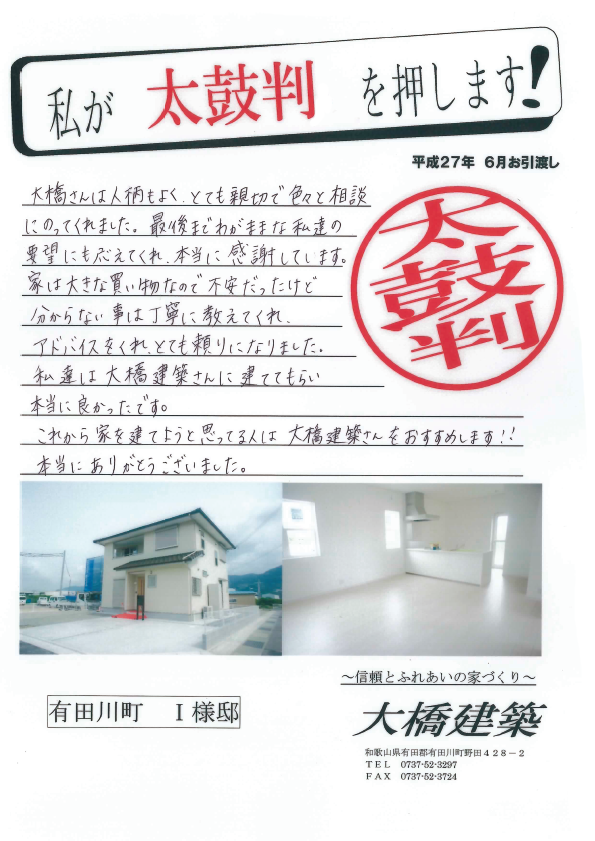 私が 太鼓判 を押します!
平成27年 6月お引渡し
大橋さんは人柄もよく、とても親切で色々と相談
にのってくれました。最後までわがままな私達の
要望にも応えてくれ、本当に感謝しています。
家は大きな買い物なので不安だったけど
分からない事は丁寧に教えてくれ、
アドバイスをくれ、とても頼りになりました。
私達は大橋建築さんに建ててもらい
本当に良かったです。
これから家を建てようと思ってる人は大橋建築さんをおすすめします!!
本当にありがとうございました。
太鼓判
～信頼とふれあいの家づくり～
有田川町 I様邸
大橋建築
和歌山県有田郡有田川町野田428－2
TEL 0737-52-3297
FAX 0737-52-3724